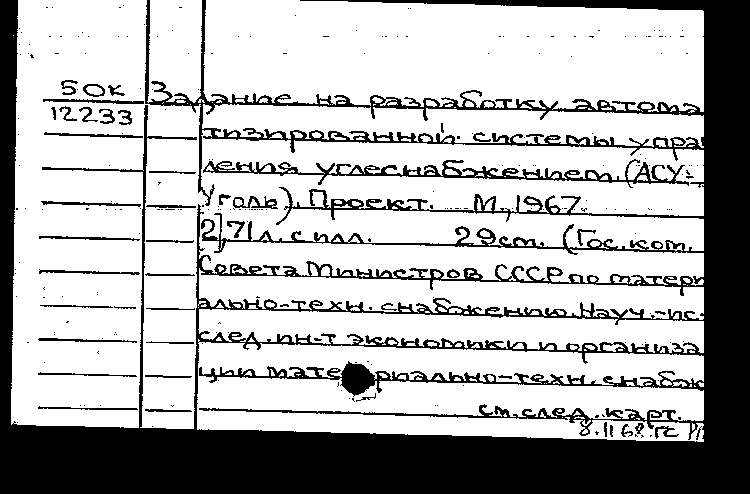 5ОК Задание на разработку автома
12233
тизированной системы управ
ления углеснабжением. (АСУ-
Уголь). Проект. М., 1967.
[2], 71 л. с илл. 29 cm. (Гос. ком.
Совета Министров СССР по матери
ально-техн. снабжению. Науч.-ис-
след. ин-т экономики и организа
ции материально-техн. снабж
см. след. карт.
8.II 68. ГС